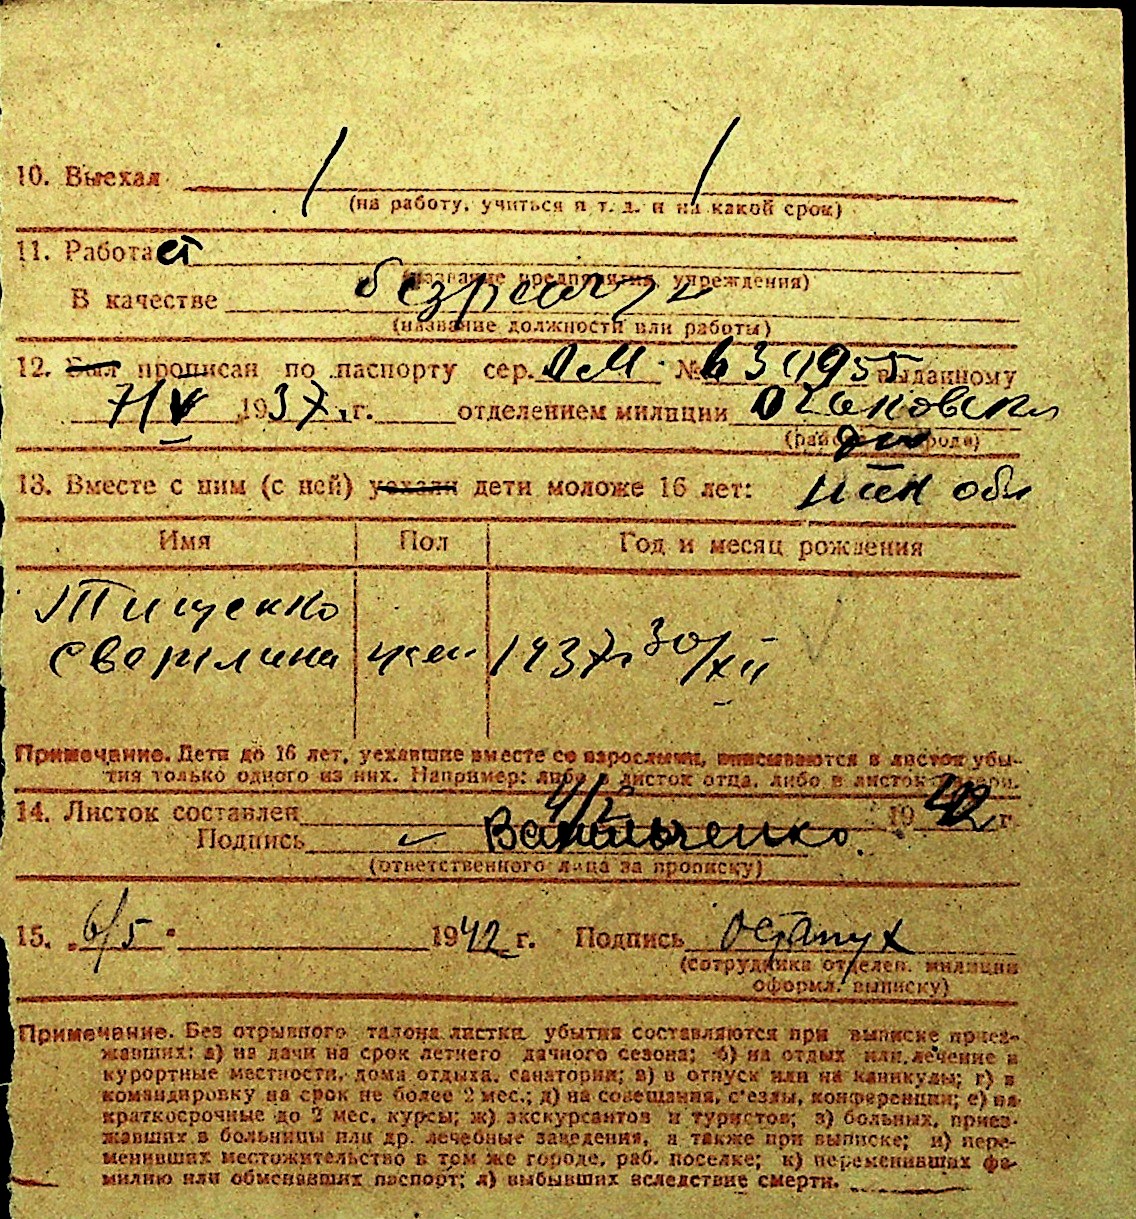 10. Выехал
(на работу, учиться и т. д. и на какой срок)
11. Работает
(название предприятия, учреждения)
В качестве
(название должности или работы)
12. Был прописан по паспорту сер. № выданному
7/V 1937 г. отделением милиции Очаковским
(района города)
13. Вместе с ним (с ней) уехали дети моложе 16 лет: обл
Имя Пол Год и месяц рождения
Тищенко
Светлана жен 1937г 30/XII
Примечание. Дети до 16 лет, уехавшие вместе со взрослыми, вписываются в листок убы-
тия только одного из них. Например: либо в листок отца, либо в листок матери.
14. Листок составлен 4/5 1942 г
Подпись Васильченко.
(ответственного лица за прописку)
15. „6/5" 1942 г. Подпись Остапух
(сотрудника отделен. милиции
оформл. выписку)
Примечание. Без отрывного талона листки убытия составляются при выписке приез-
жавших: а) на дачи на срок летнего дачного сезона; б) на отдых или лечение в
курортные местности, дома отдыха, санатории; в) в отпуск или на каникулы; г) в
командировку на срок не более 2 мес.; д) на совещания, с'езды, конференции; е) на
краткосрочные до 2 мес. курсы; ж) экскурсантов и туристов; з) больных, приез-
жавших в больницы или др. лечебные заведения, а также при выписке; и) пере-
менивших местожительство в том же городе, раб. поселке; к) переменивших фа-
милию или обменавших паспорт; л) выбывших вследствие смерти.